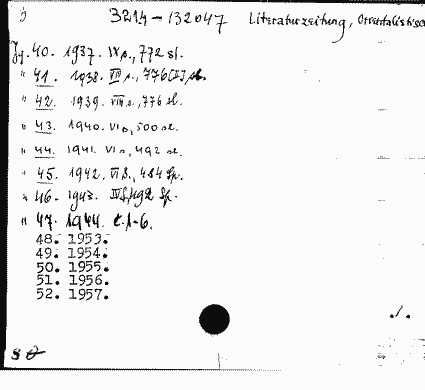 3214-132047 Literaturzeitung, Orientalistische
Jg. 40. 1937. IX s., 772 sl.
" 41. 1938. VIII s., 776 [II] sl.
" 42. 1939. VIII s., 776 sl.
" 43. 1940. VI s., 500 sl.
" 44. 1941. VI s., 492 sl.
" 45. 1942. VI S., 484 Sp.
" 46. 1943. IV S., 492 Sp.
" 47. 1944. č. 1-6.
48. 1953.
49. 1954.
50. 1955.
51. 1956.
52. 1957.
./.